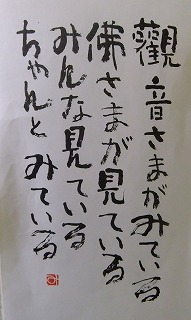 觀音さまがみている
佛さまが見ている
みんな見ている
ちゃんとみている